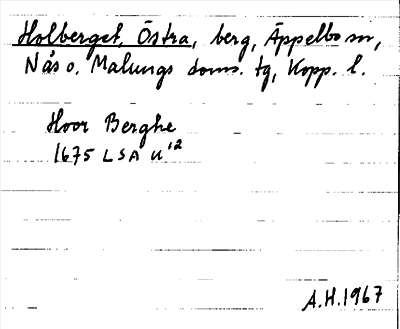 Holberget, Östra, berg, Äppelbo sn,
Nås o. Malungs doms. tg, Kopp. l.
Hoor Berghe
1675 LSA U¹²
A.H. 1967